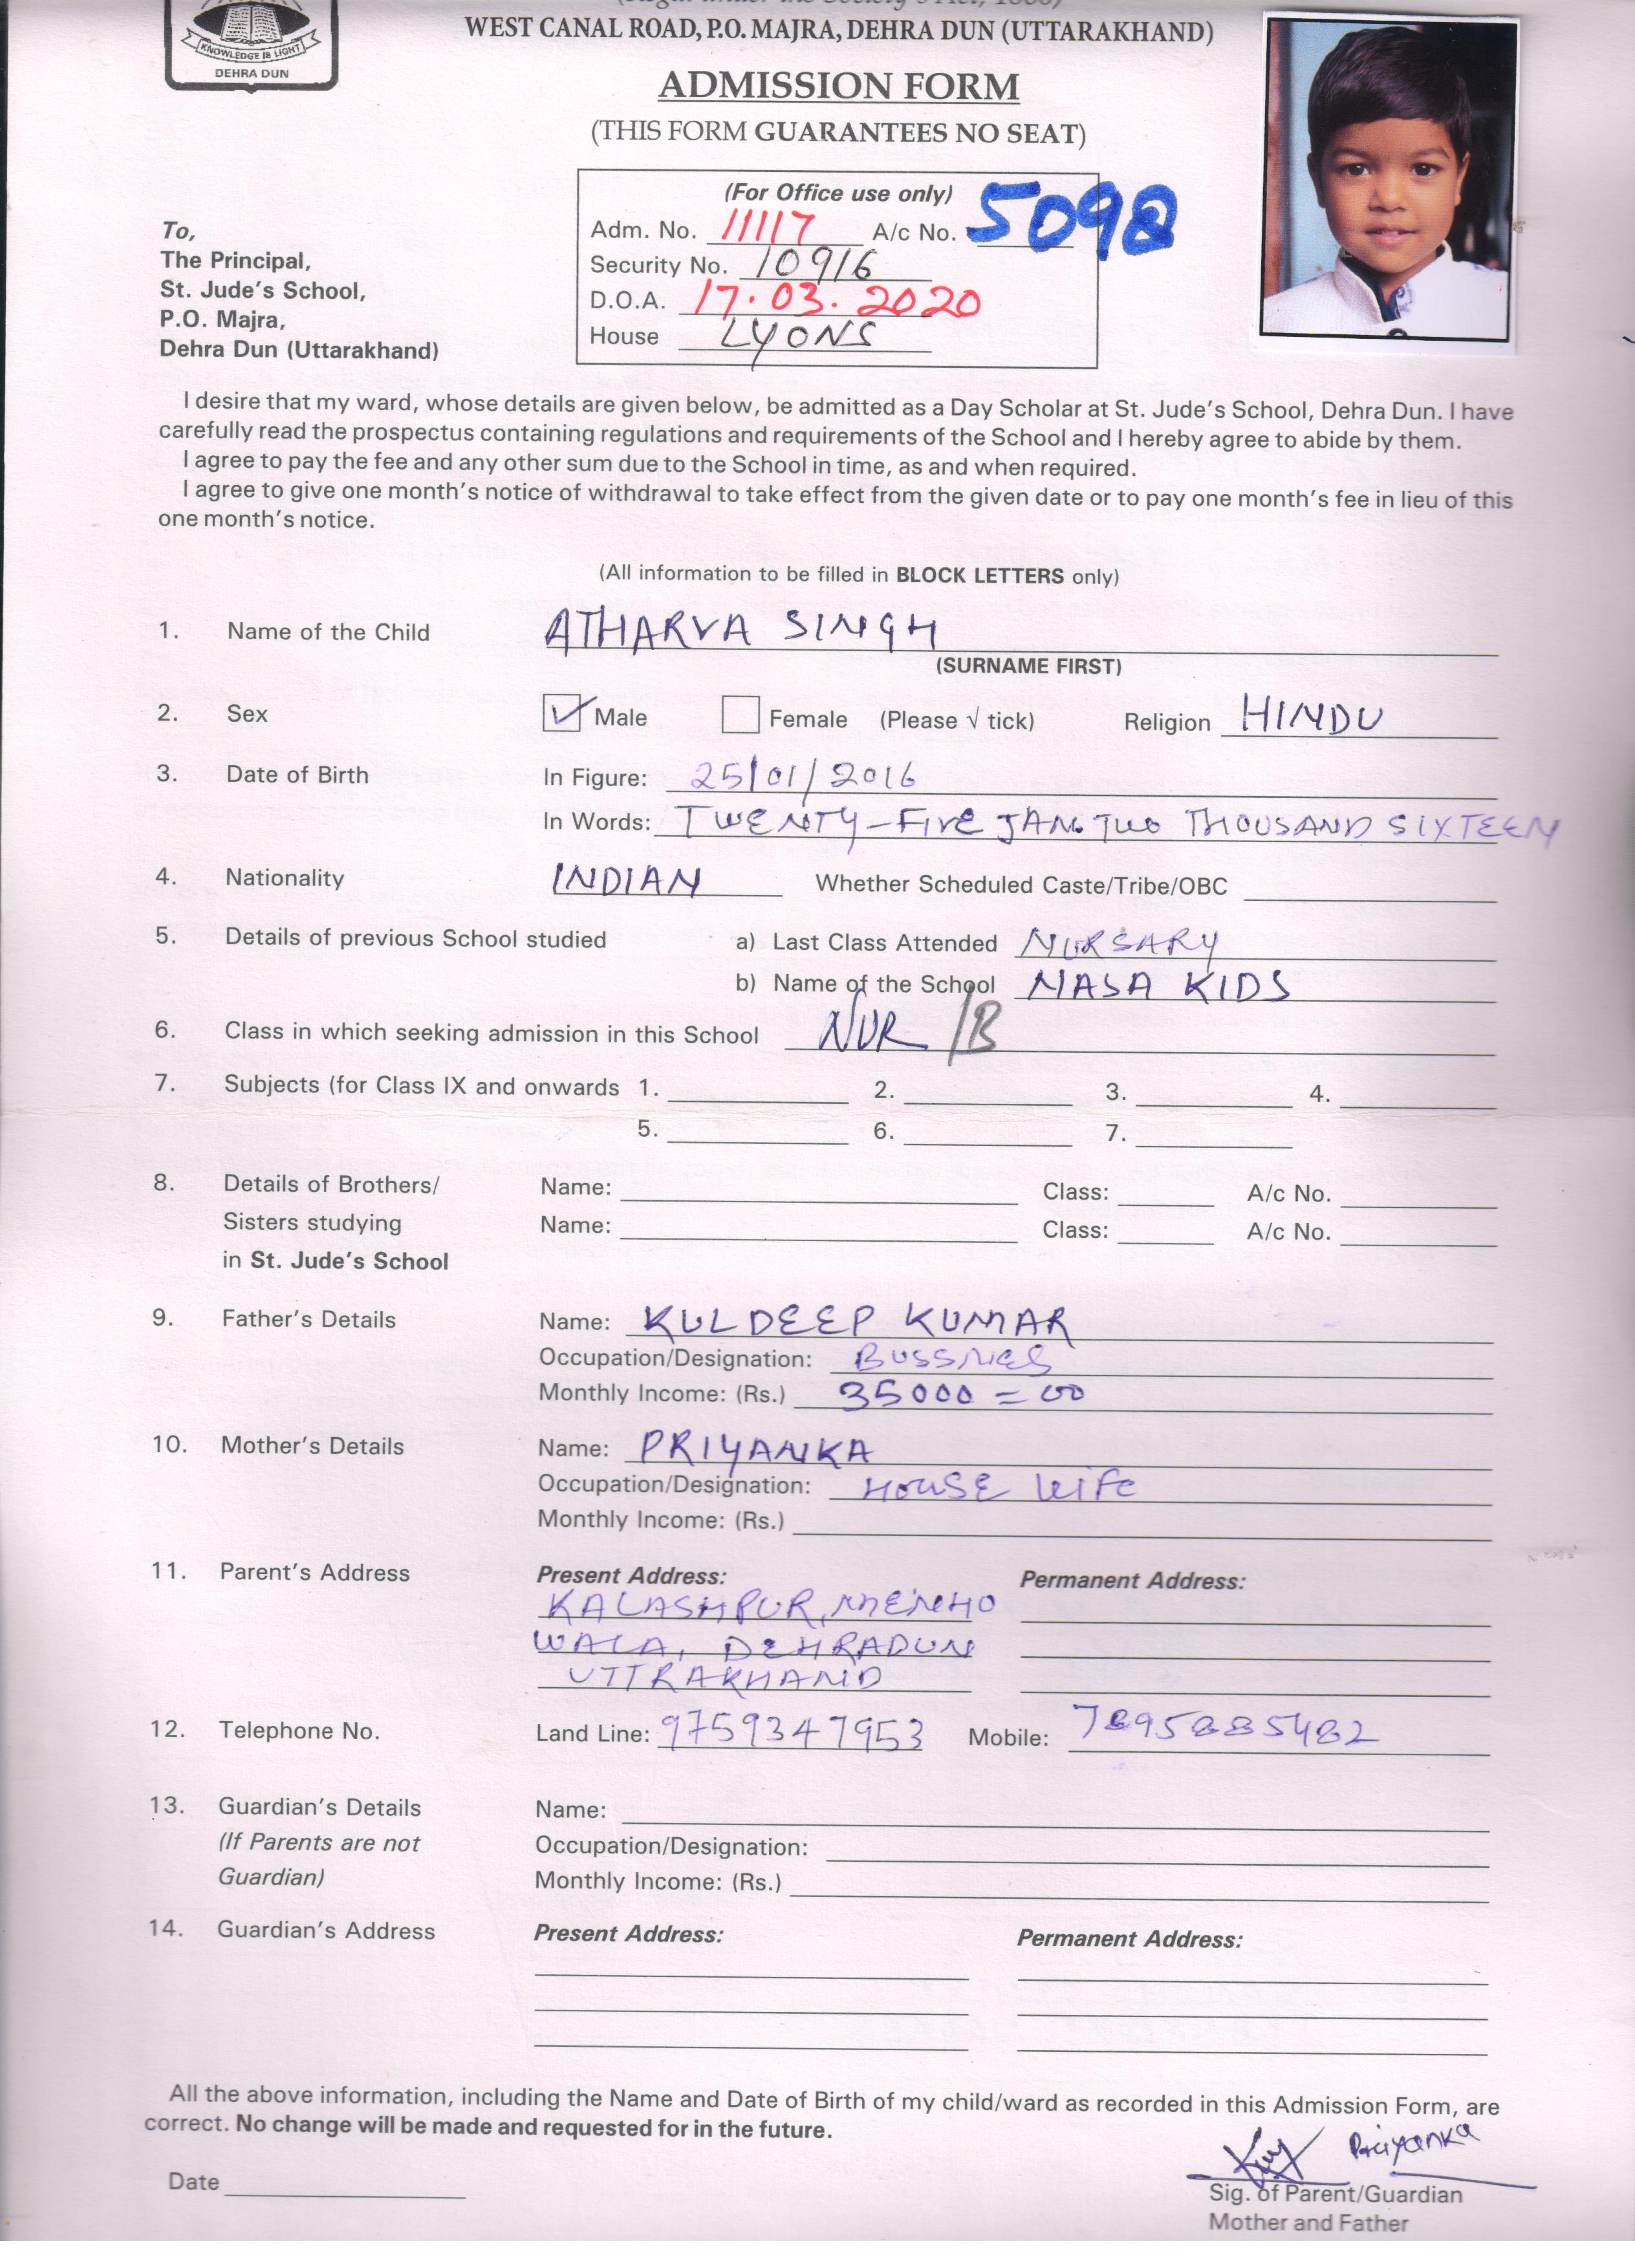 KNOWLEDGE IS LIGHT
DEHRA DUN
WEST CANAL ROAD, P.O. MAJRA, DEHRA DUN (UTTARAKHAND)
ADMISSION FORM
(THIS FORM GUARANTEES NO SEAT)
(For Office use only)
Adm. No. 11117 A/c No. 5098
Security No. 10916
D.O.A. 17.03.2020
House LYONS
To,
The Principal,
St. Jude's School,
P.O. Majra,
Dehra Dun (Uttarakhand)
I desire that my ward, whose details are given below, be admitted as a Day Scholar at St. Jude's School, Dehra Dun. I have
carefully read the prospectus containing regulations and requirements of the School and I hereby agree to abide by them.
I agree to pay the fee and any other sum due to the School in time, as and when required.
I agree to give one month's notice of withdrawal to take effect from the given date or to pay one month's fee in lieu of this
one month's notice.
(All information to be filled in BLOCK LETTERS only)
1. Name of the Child ATHARVA SINGH
(SURNAME FIRST)
2. Sex ✓ Male Female (Please √ tick) Religion HINDU
3. Date of Birth In Figure: 25/01/2016
In Words: TWENTY-FIVE JAN. TWO THOUSAND SIXTEEN
4. Nationality INDIAN Whether Scheduled Caste/Tribe/OBC
5. Details of previous School studied a) Last Class Attended NURSARY
b) Name of the School NASA KIDS
6. Class in which seeking admission in this School NUR /B
7. Subjects (for Class IX and onwards 1. 2. 3. 4.
5. 6. 7.
8. Details of Brothers/ Name: Class: A/c No.
Sisters studying Name: Class: A/c No.
in St. Jude's School
9. Father's Details Name: KULDEEP KUMAR
Occupation/Designation: BUSSNIES
Monthly Income: (Rs.) 35000=00
10. Mother's Details Name: PRIYANKA
Occupation/Designation: HOUSE WIFE
Monthly Income: (Rs.)
11. Parent's Address Present Address: Permanent Address:
KALASHPUR, MEHHO
WALA, DEHRADUN
UTTRAKHAND
12. Telephone No. Land Line: 9759347953 Mobile: 7895885482
13. Guardian's Details Name:
(If Parents are not Occupation/Designation:
Guardian) Monthly Income: (Rs.)
14. Guardian's Address Present Address: Permanent Address:
All the above information, including the Name and Date of Birth of my child/ward as recorded in this Admission Form, are
correct. No change will be made and requested for in the future.
Priyanka
Date Sig. of Parent/Guardian
Mother and Father